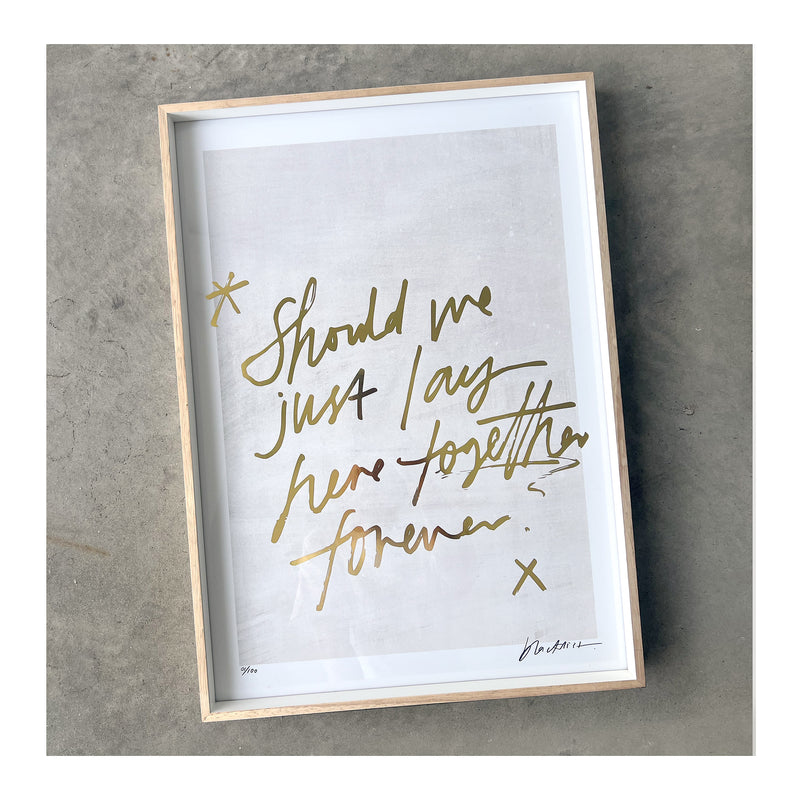 * Should we
just lay
here together
forever?
x
01/100